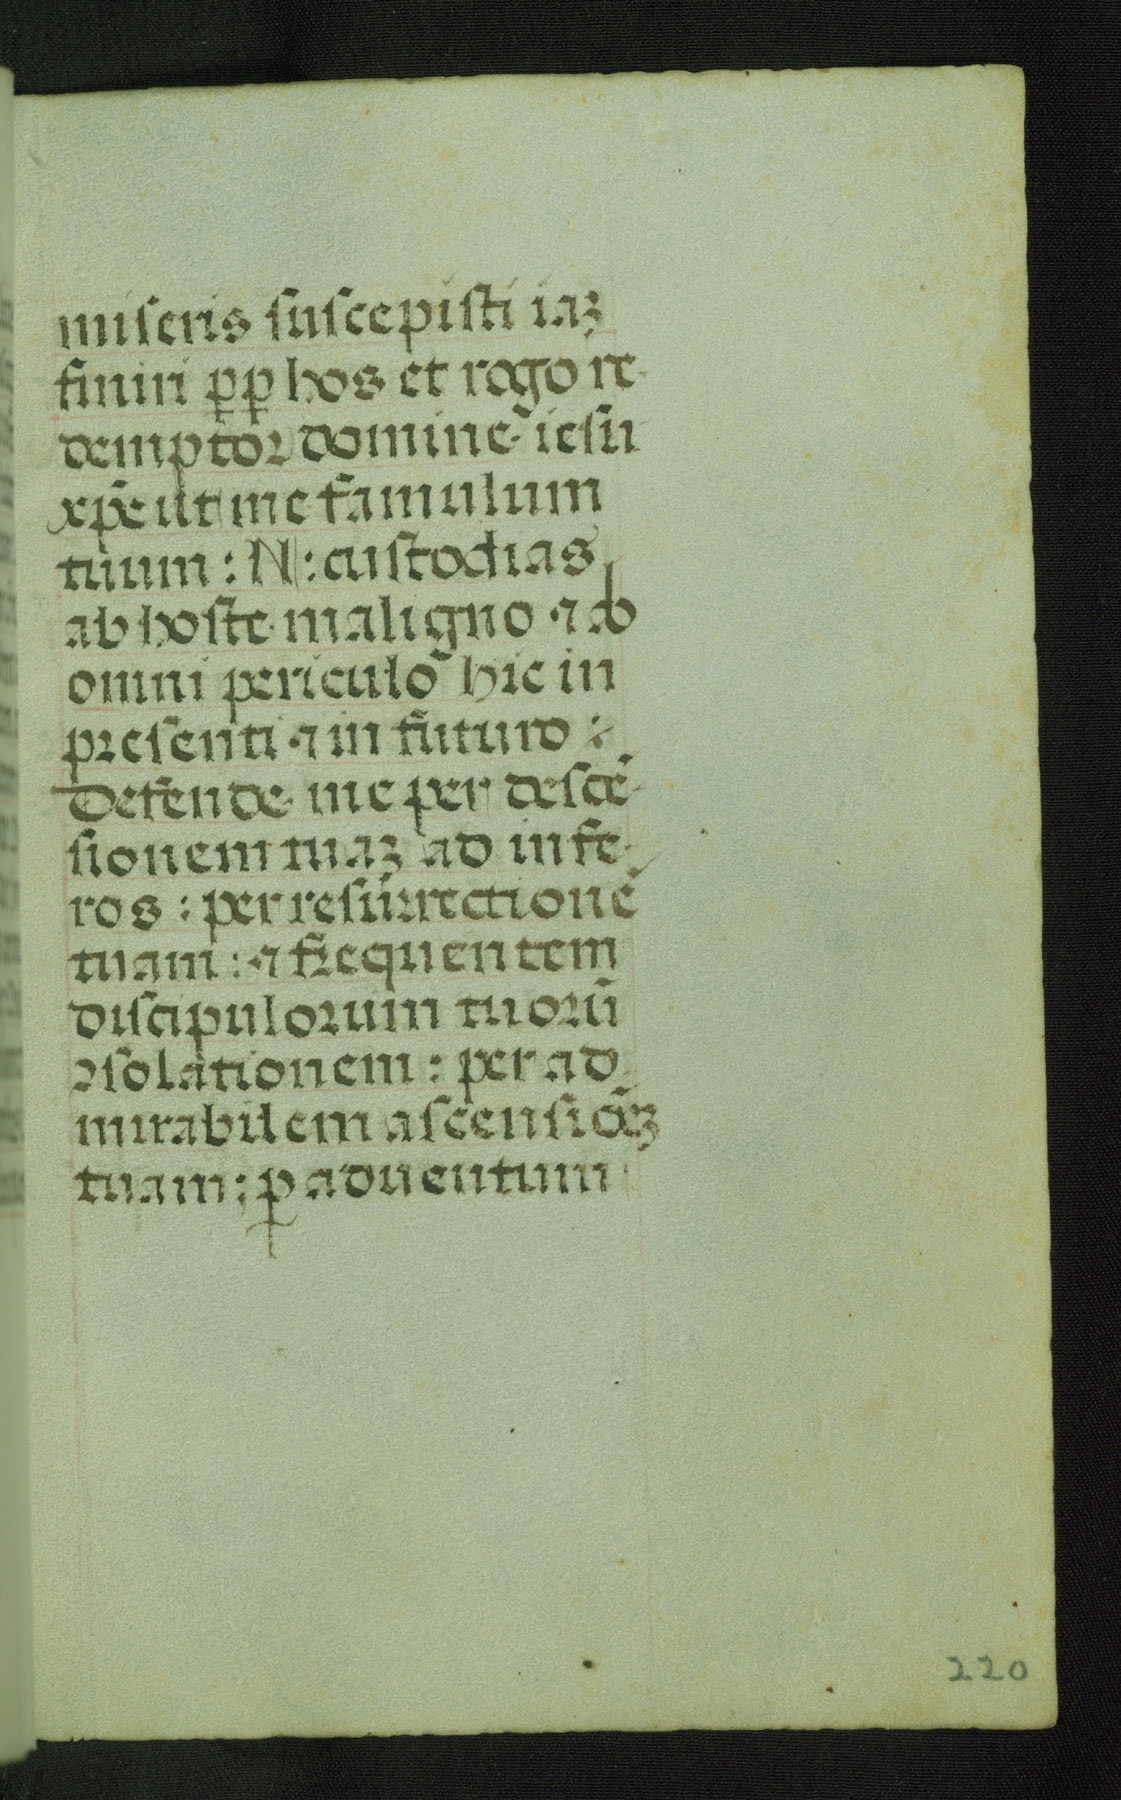 miseris suscepisti iaꝫ
finiri ꝑꝑ hos et rogo re
demptor domine iesu
xp̄e ut me famulum
tuum : N : custodias
ab hoste maligno ⁊ ab
omni periculo hic in
presenti ⁊ in futuro :
Defende me per descē
sionem tuaꝫ ad infe
ros : per resurrectionē
tuam : ⁊ frequentem
discipulorum tuorū
ꝯsolationem : per ad
mirabilem ascensiōeꝫ
tuam : ꝑ aduentum
220